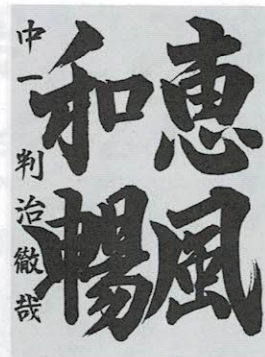 恵風
和暢
中一 判治徹哉